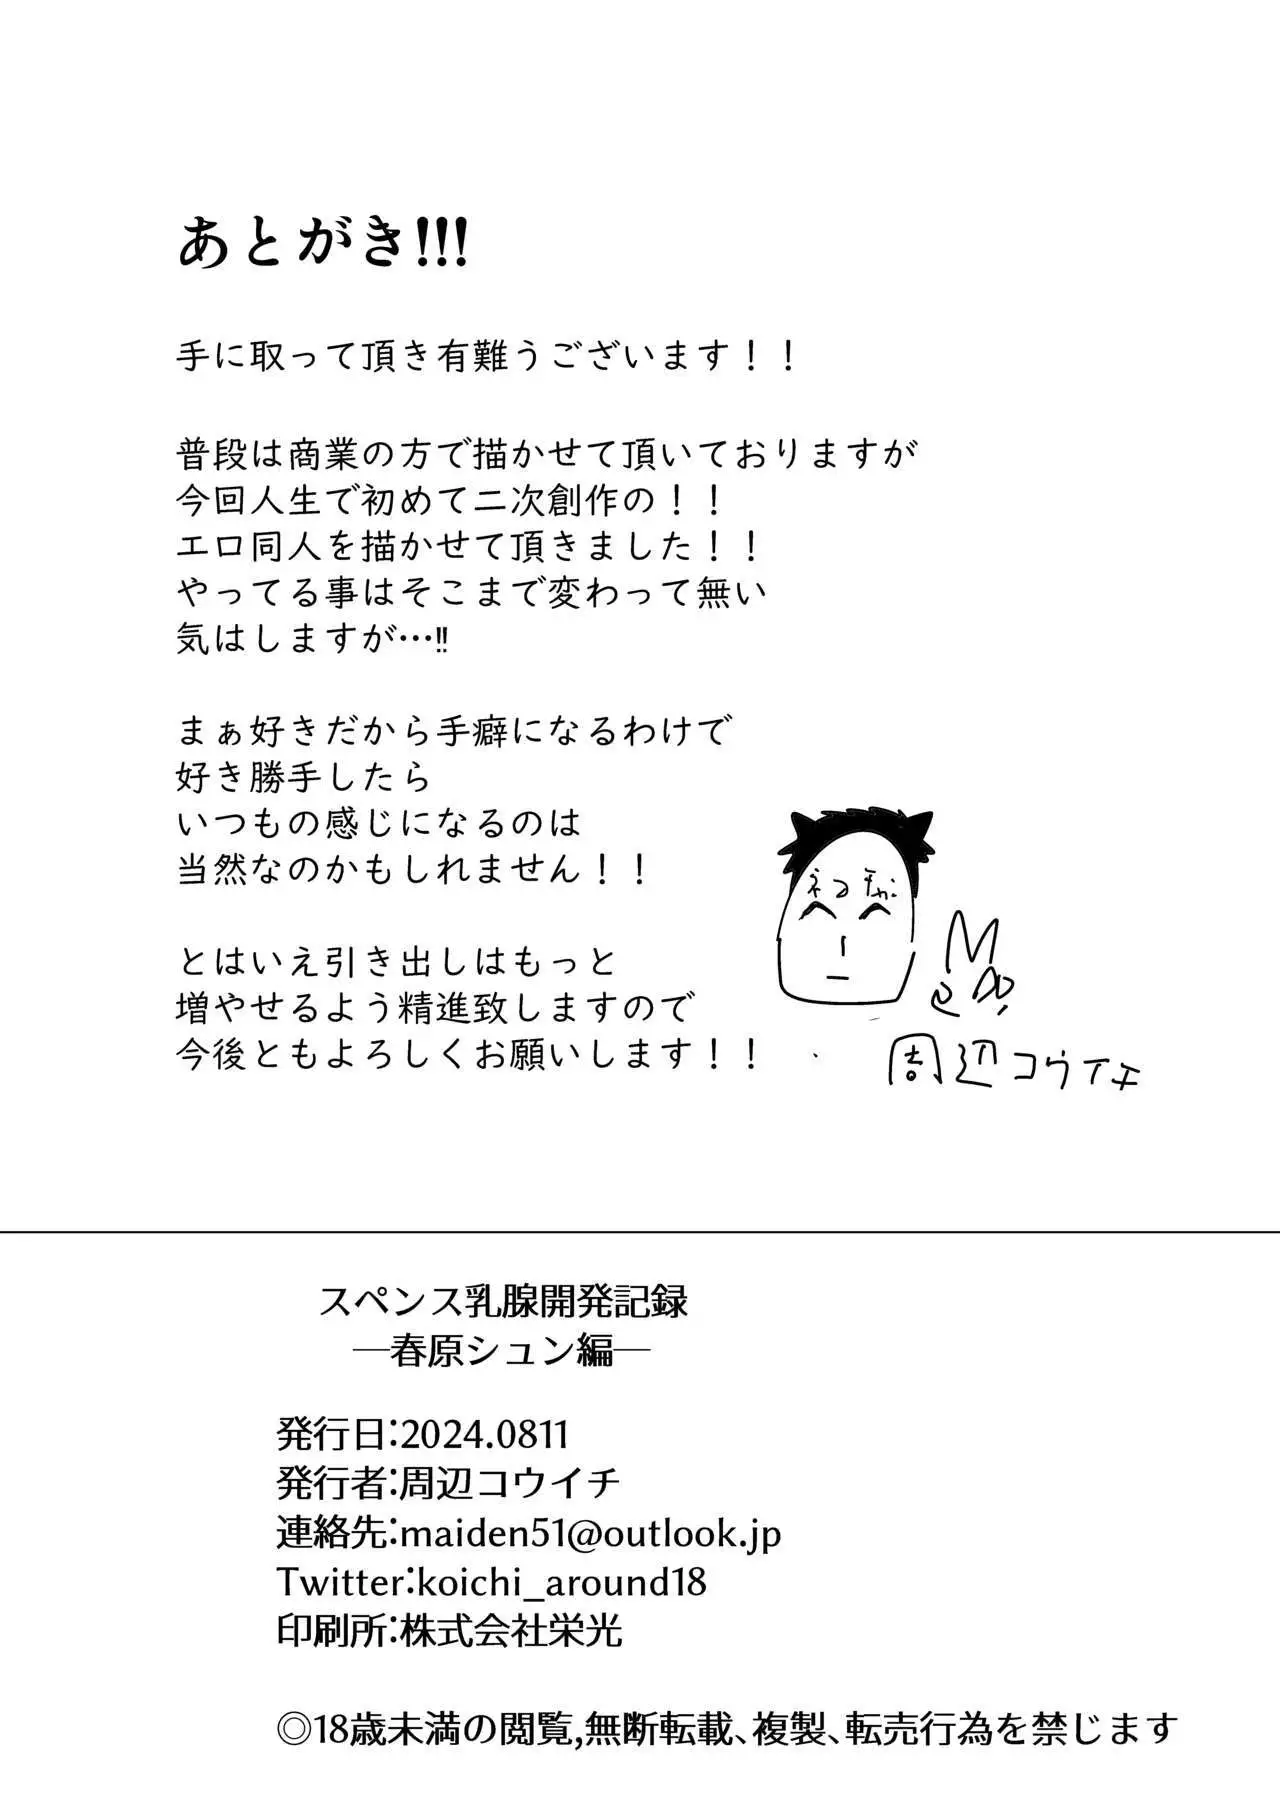 あとがき!!!
手に取って頂き有難うございます！！
普段は商業の方で描かせて頂いておりますが
今回人生で初めて二次創作の！！
エロ同人を描かせて頂きました！！
やってる事はそこまで変わって無い
気はしますが…!!
まぁ好きだから手癖になるわけで
好き勝手したら
いつもの感じになるのは
当然なのかもしれません！！
とはいえ引き出しはもっと
増やせるよう精進致しますので
今後ともよろしくお願いします！！
周辺コウイチ
スペンス乳腺開発記録
―春原シュン編―
発行日:2024.0811
発行者:周辺コウイチ
連絡先:maiden51@outlook.jp
Twitter:koichi_around18
印刷所:株式会社栄光
◎18歳未満の閲覧,無断転載､複製､転売行為を禁じます